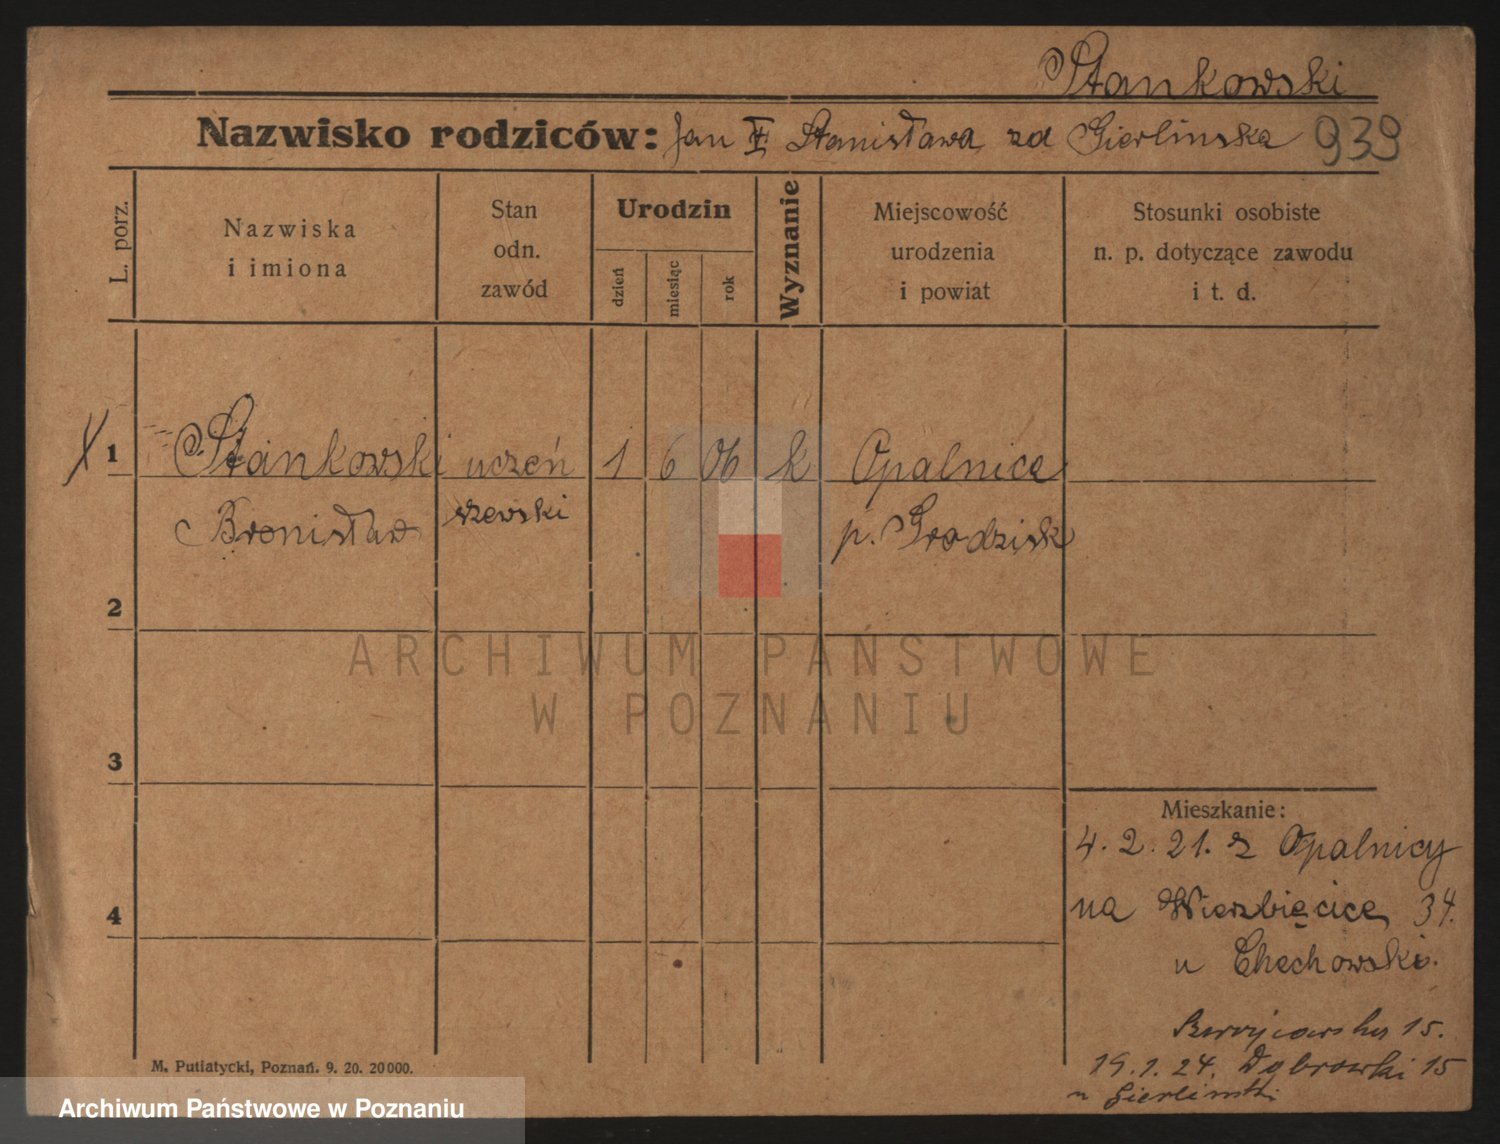 Stankowski
Nazwisko rodziców: Jan I Stanisława zd Gierlinska 939
L. porz.
Nazwiska
i imiona
Stan
odn.
zawód
Urodzin
dzień
miesiąc
rok
Wyznanie
Miejscowość
urodzenia
i powiat
Stosunki osobiste
n. p. dotyczące zawodu
i t. d.
1 Stankowski uczeń 1 6 06 k Opalnica
Bronisław szewski p. Grodzisk
2
ARCHIWUM PAŃSTWOWE
W POZNANIU
3
Mieszkanie:
4. 2. 21. z Opalnicy
na Wierzbięcice 34.
4
u Chechowski.
15.
19. 1. 24. Dąbrowski 15
u Gierlinski
M. Putiatycki, Poznań. 9. 20. 20000.
Archiwum Państwowe w Poznaniu